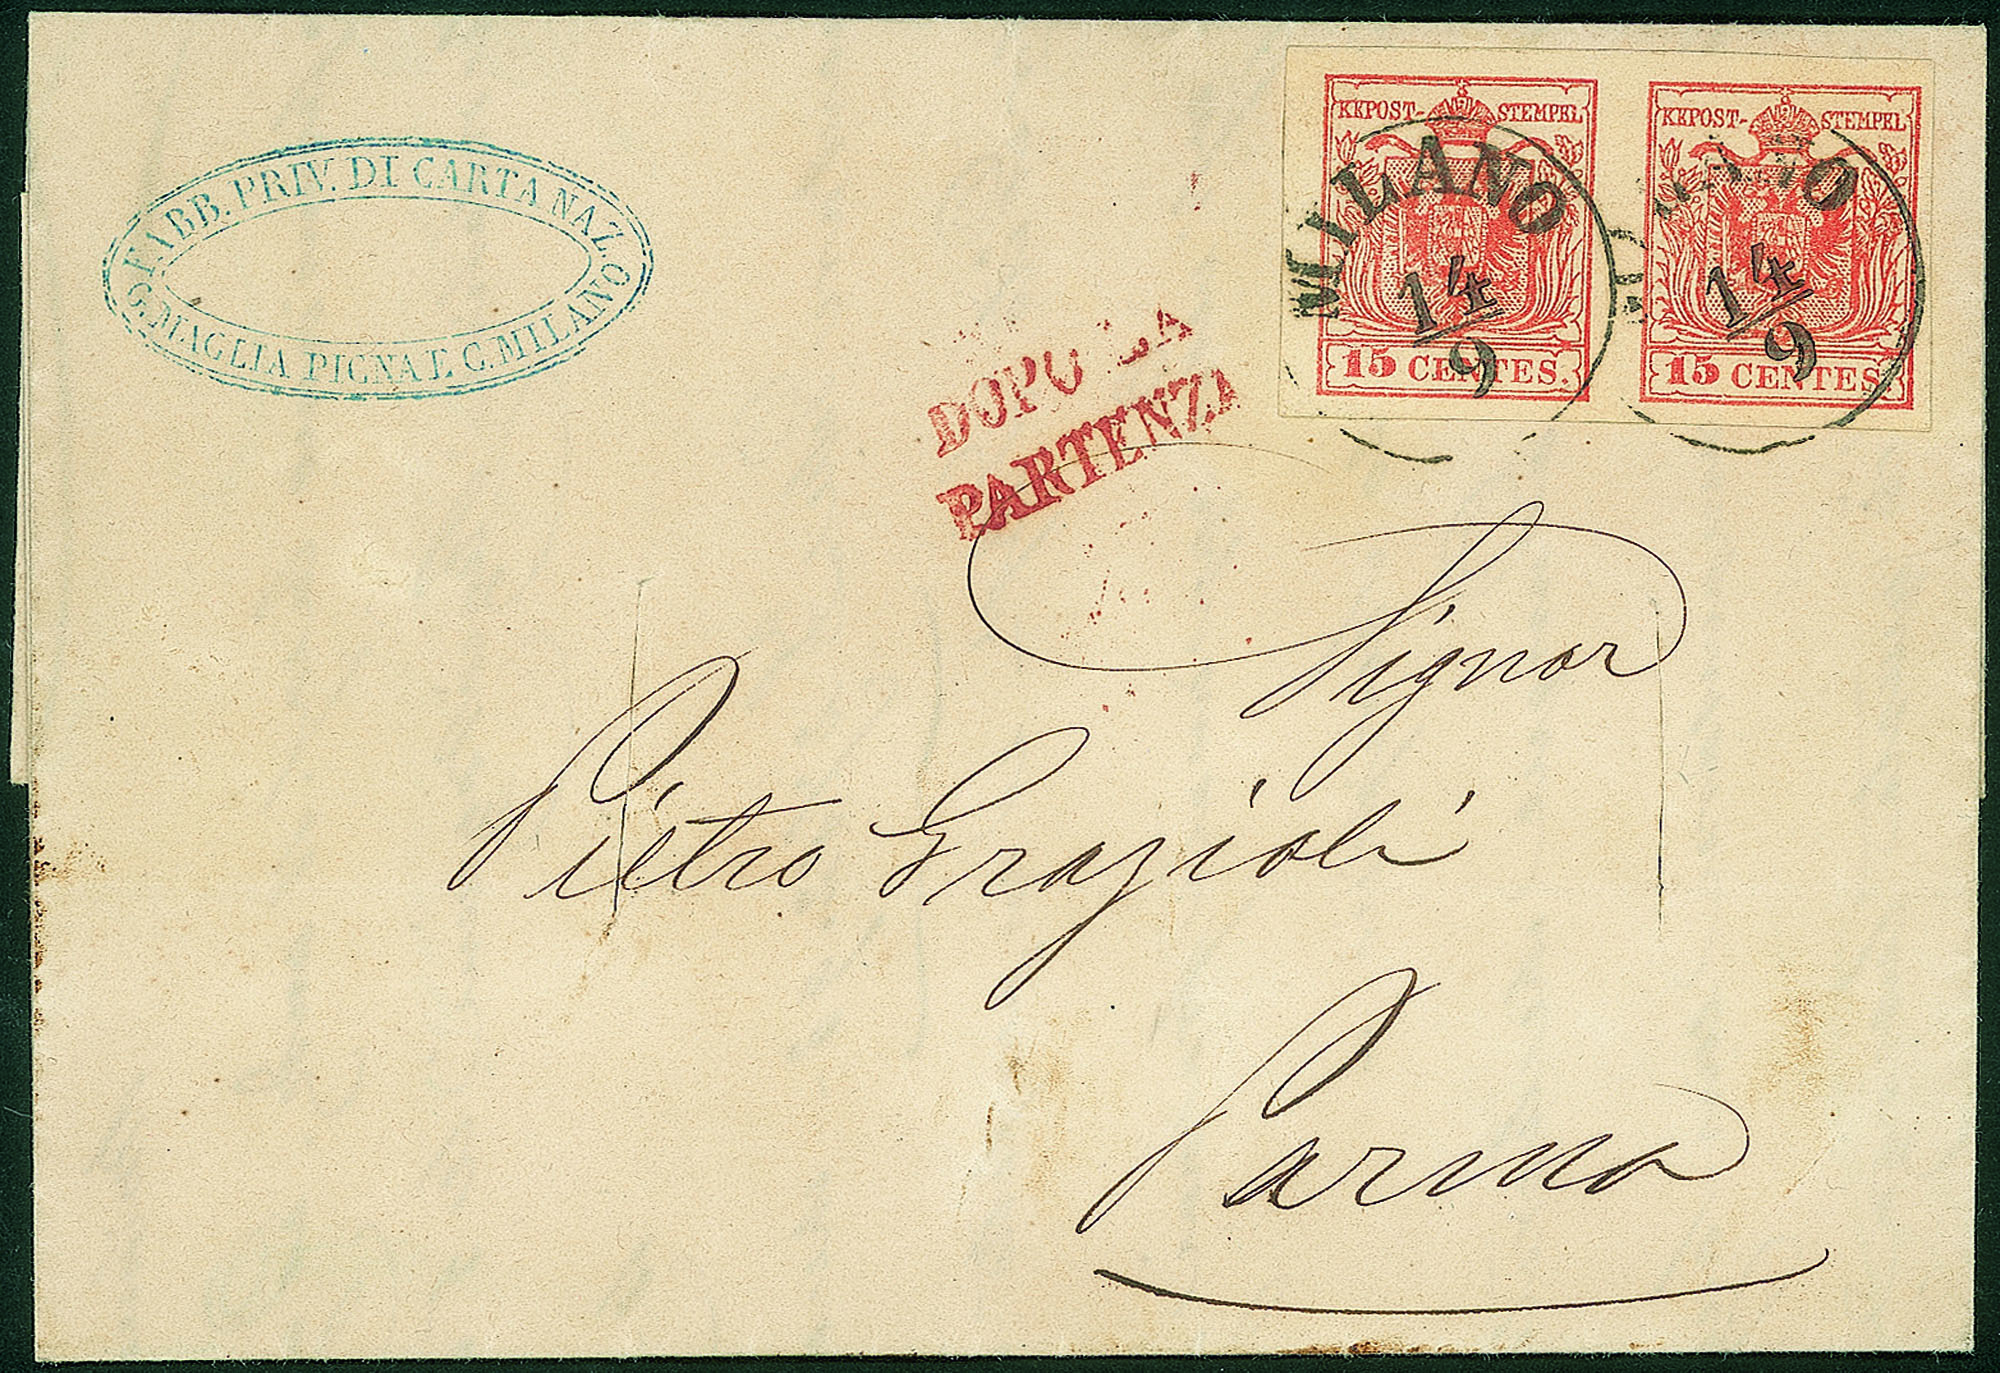 FABB. PRIV. DI CARTA NAZ.
G. MAGLIA PIGNA E C. MILANO
KKPOST-STEMPEL
15 CENTES.
KKPOST-STEMPEL
15 CENTES.
MILANO
14/9
14/9
DOPO LA
PARTENZA
Signor
Pietro Grazioli
Parma